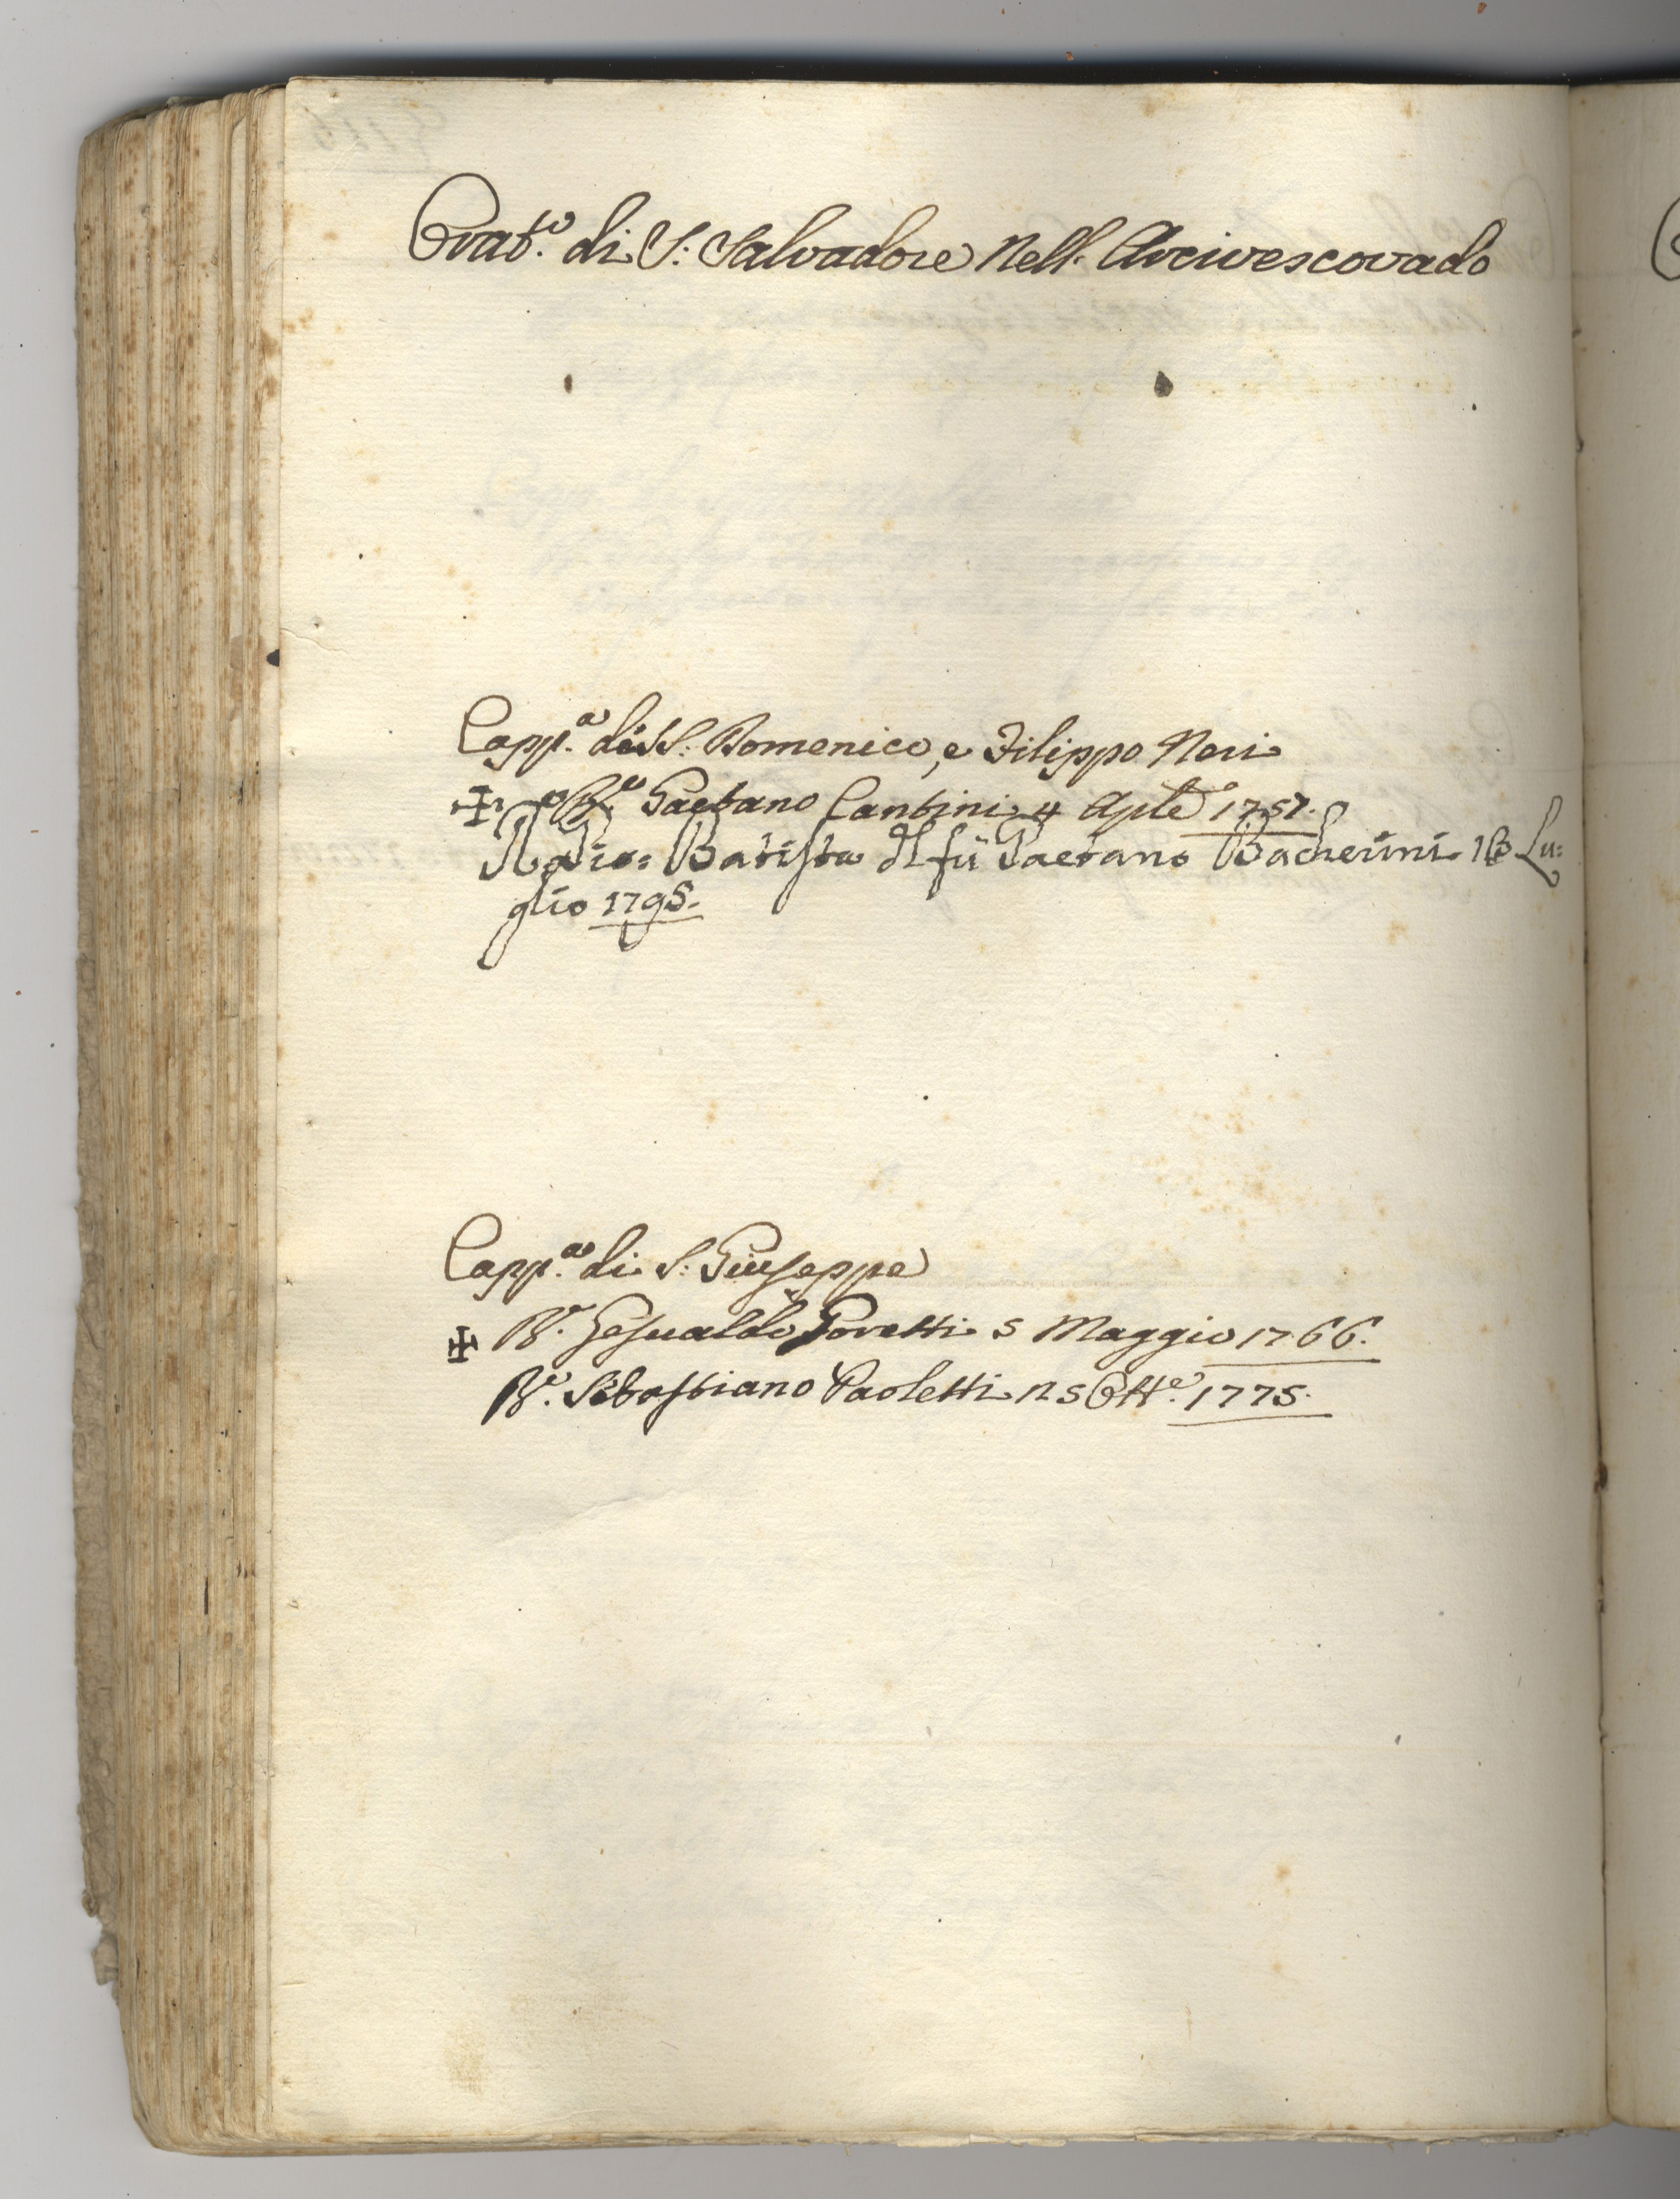 Orat.o di S: Salvadore Nell. Arcivescovado
Capp.a de SS. Domenico, e Filippo Neri
✠ P.e Gaetano Cantini 4 Aple 1757.
Batista del fù Gaetano Bacherini 16 Lu:
glio 1795.
Capp.a di S: Giuseppe
✠ P.e Gesualdo Poretti 5 Maggio 1766.
P.e Sebastiano Paoletti 25 Ott.e 1775.